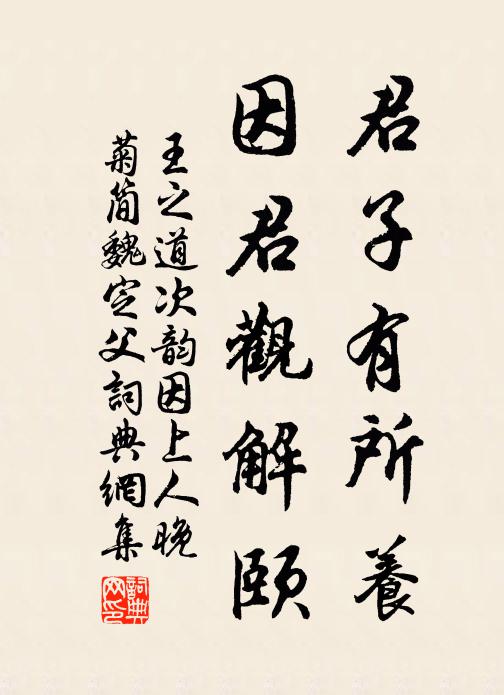 君子有所養
因君觀解頤
王之道次韵因上人晚
菊简魏定父詞典網集
詞典網印